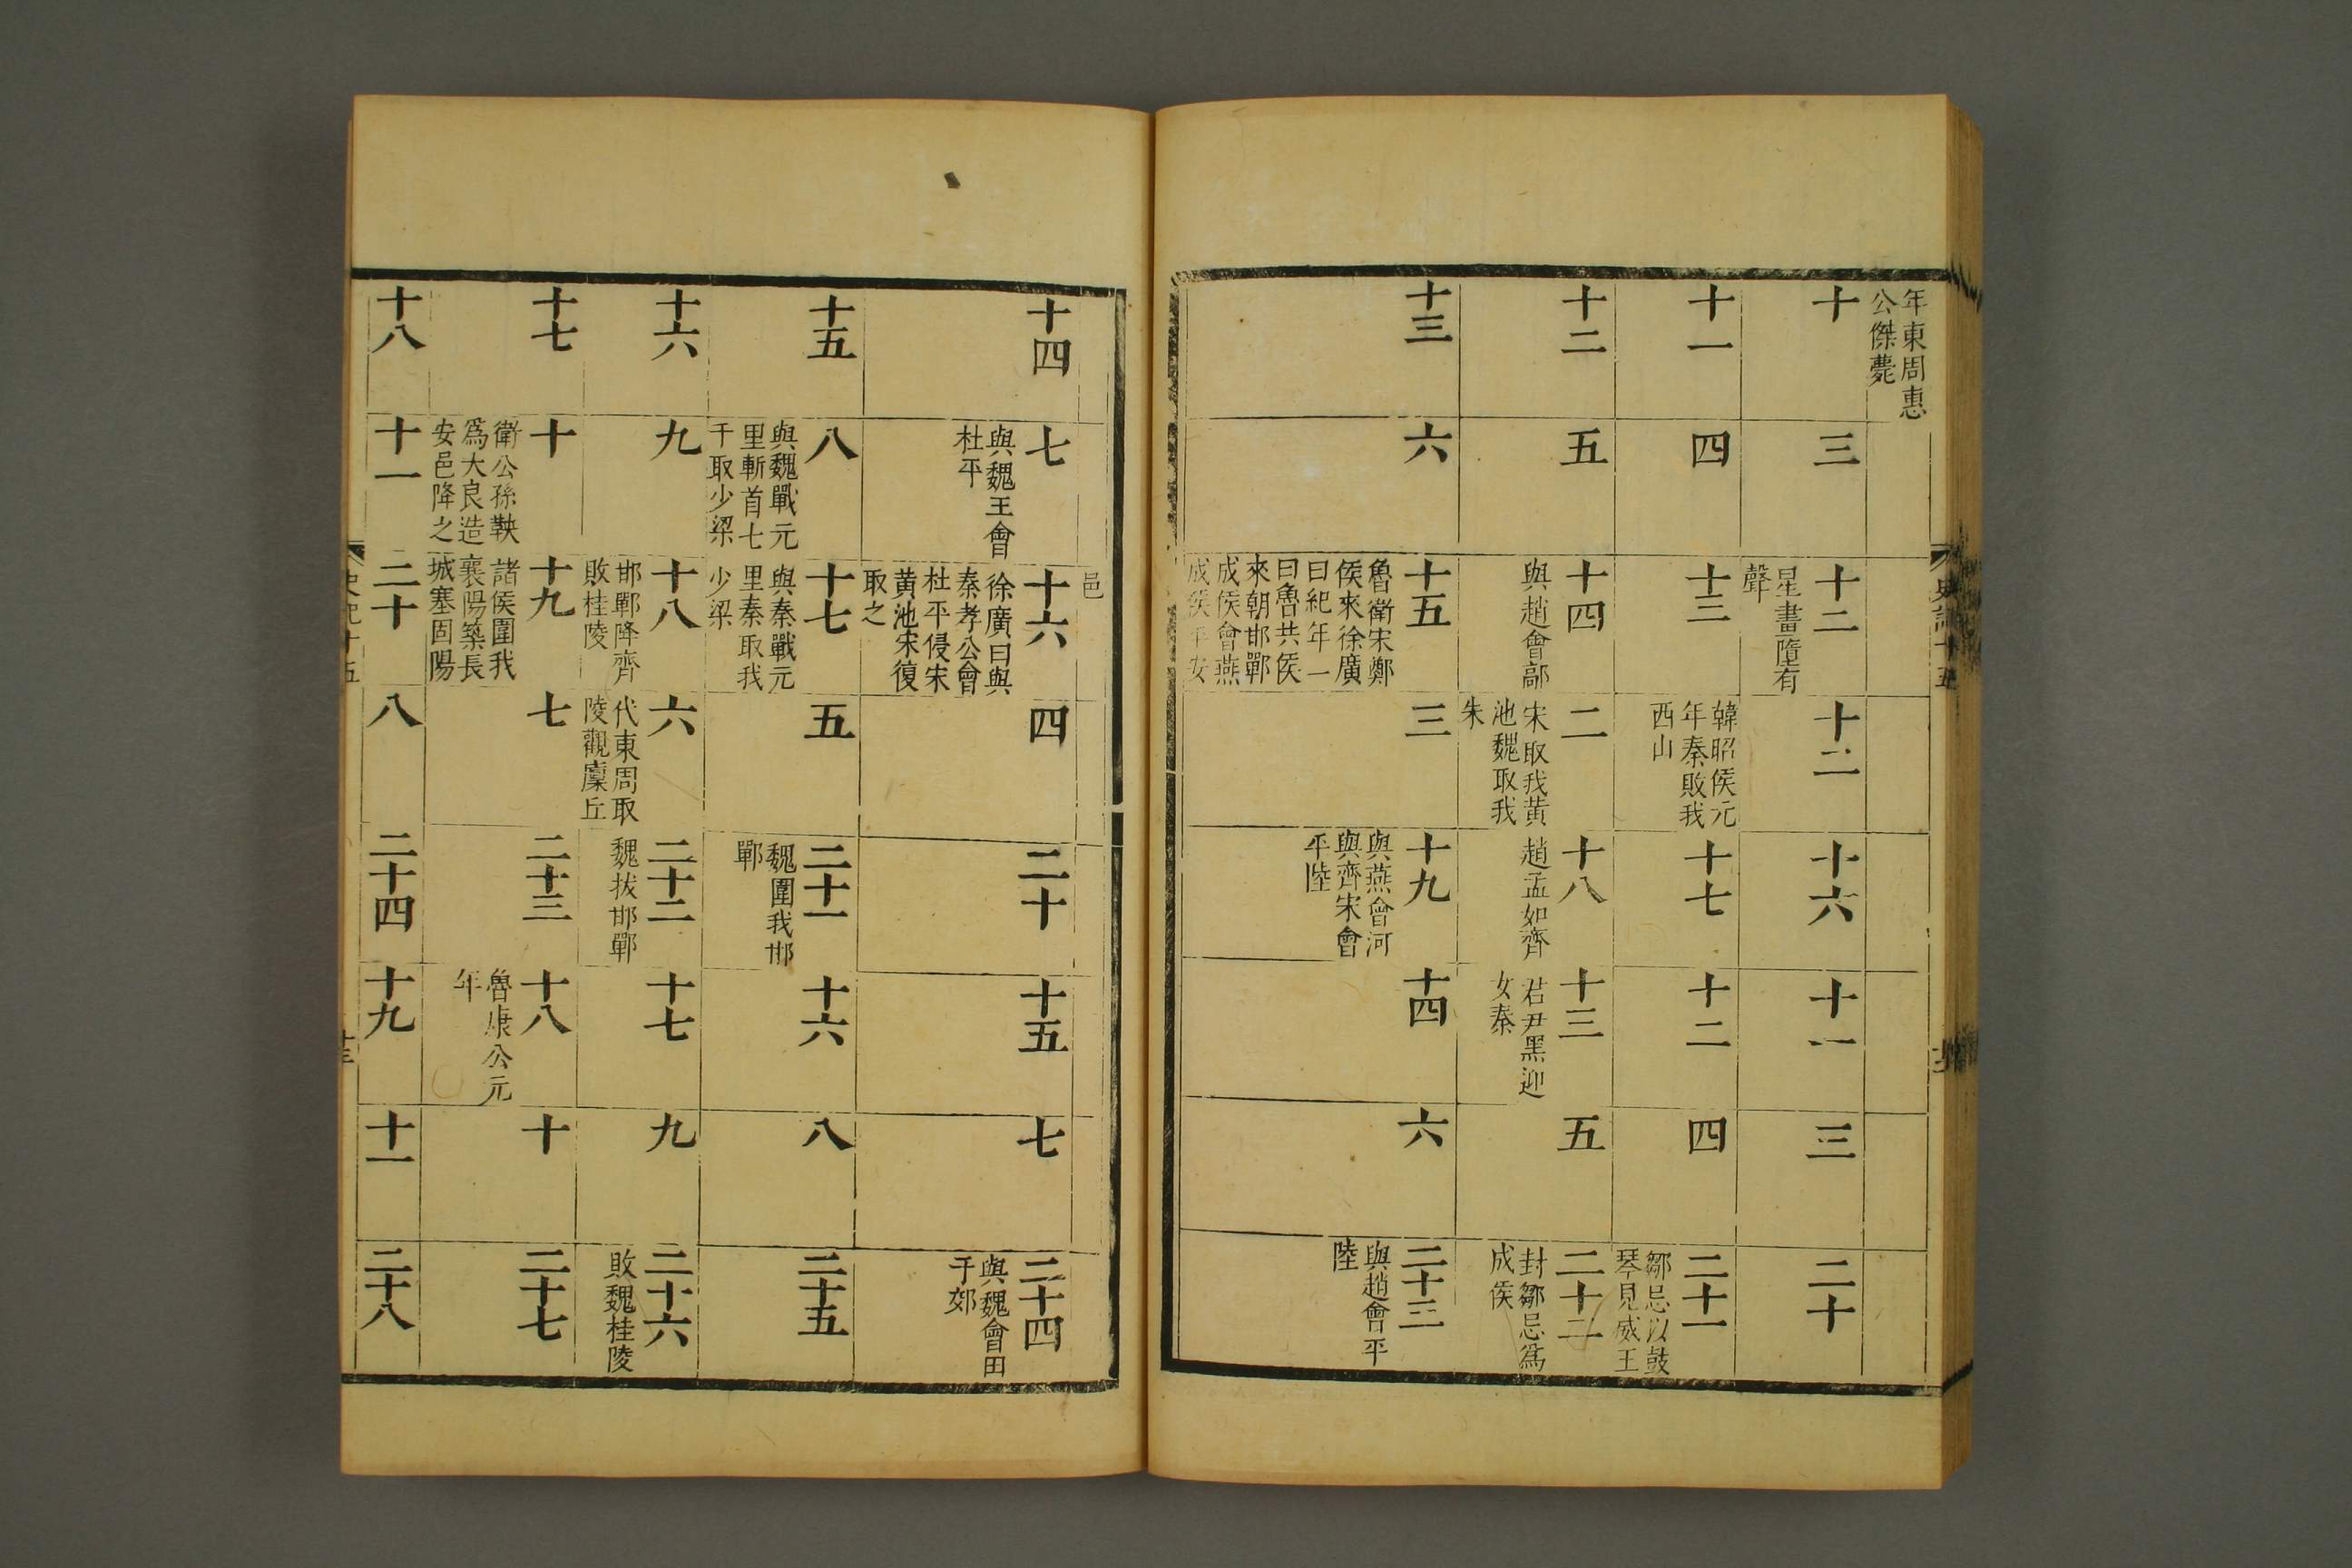 年東周惠
公傑薨
十
三
十二
星晝墮有
聲
十二
十六
十一
三
二十
十一
四
十三
韓昭侯元
年秦敗我
西山
十七
十二
四
二十一
鄒忌以鼓
琴見威王
十二
五
十四
與趙會鄗
二
宋取我黃
池魏取我
朱
十八
趙孟如齊
十三
君尹黑迎
女秦
五
二十二
封鄒忌爲
成侯
十三
六
十五
魯衛宋鄭
侯來徐廣
曰紀年一
曰魯共侯
來朝邯鄲
成侯會燕
成侯平安
三
十九
與燕會河
與齊宋會
平陸
十四
六
二十三
與趙會平
陸
邑
十四
七
與魏王會
杜平
十六
徐廣曰與
秦孝公會
杜平侵宋
黃池宋復
取之
四
二十
十五
七
二十四
與魏會田
于郊
十五
八
與魏戰元
里斬首七
千取少梁
十七
與秦戰元
里秦取我
少梁
五
二十一
魏圍我邯
鄲
十六
八
二十五
十六
九
十八
邯鄲降齊
敗桂陵
六
代東周取
陵觀廩丘
二十二
魏拔邯鄲
十七
九
二十六
敗魏桂陵
十七
十
衛公孫鞅
爲大良造
安邑降之
十九
諸侯圍我
襄陽築長
城塞固陽
七
二十三
十八
魯康公元
年
十
二十七
十八
十一
二十
八
二十四
十九
十一
二十八